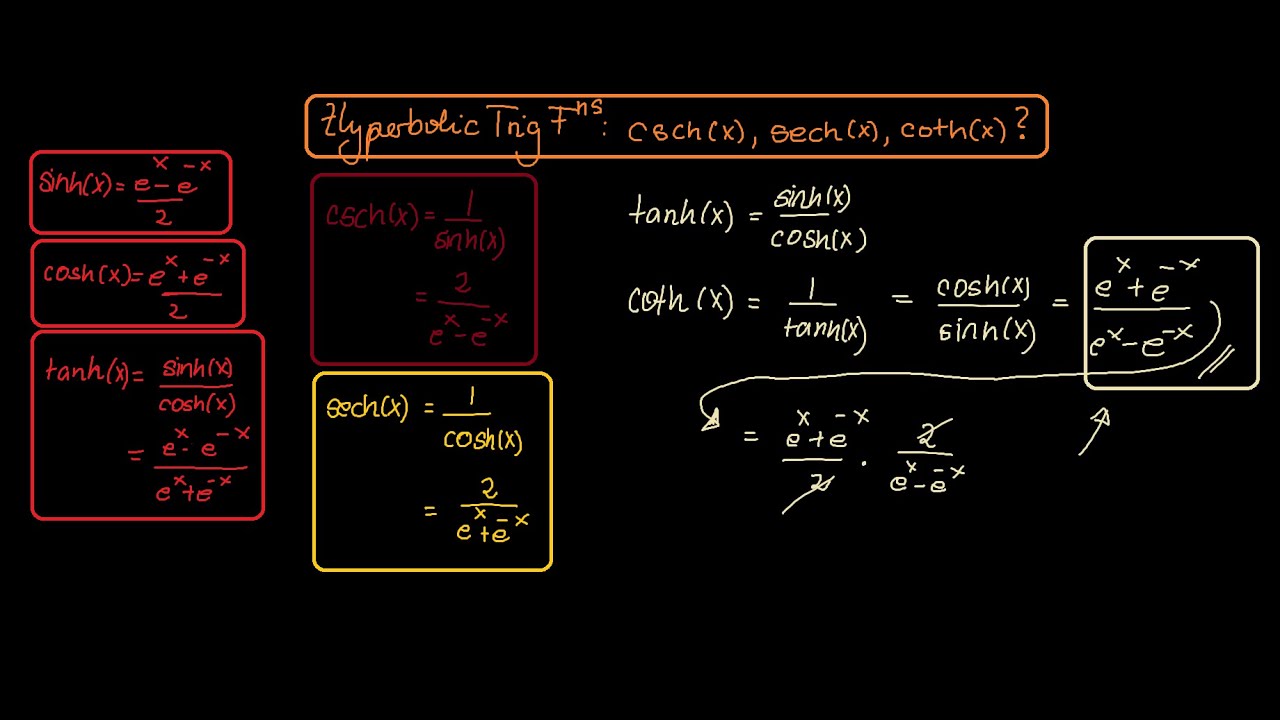 Hyperbolic Trig Fⁿˢ: csch(x), sech(x), coth(x)?
sinh(x) = (e^x - e^-x)/2
cosh(x) = (e^x + e^-x)/2
tanh(x) = sinh(x)/cosh(x)
= (e^x - e^-x)/(e^x + e^-x)
csch(x) = 1/sinh(x)
= 2/(e^x - e^-x)
sech(x) = 1/cosh(x)
= 2/(e^x + e^-x)
tanh(x) = sinh(x)/cosh(x)
coth(x) = 1/tanh(x) = cosh(x)/sinh(x) = (e^x + e^-x)/(e^x - e^-x)
= (e^x + e^-x)/2 · 2/(e^x - e^-x)